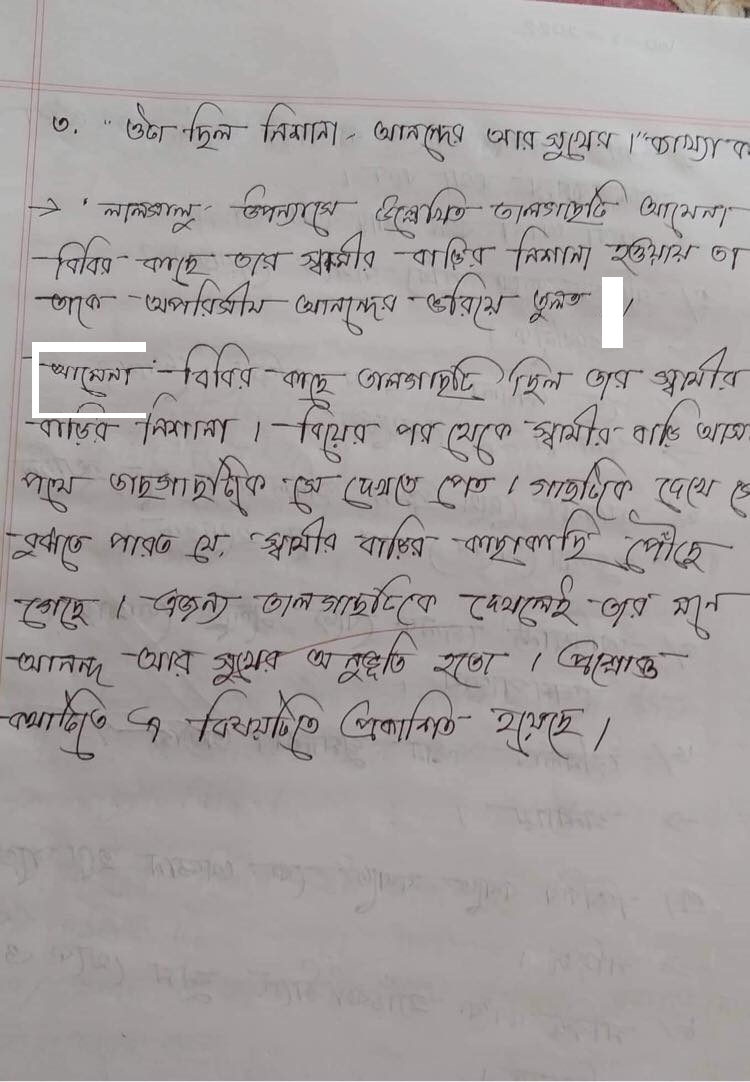 ৩. "ওটা ছিল নিশানা, আনন্দের আর সুখের।" ব্যাখ্যা ক
→ 'লালসালু' উপন্যাসে উল্লেখিত তালগাছটি আমেনা
বিবির কাছে তার স্বামীর বাড়ির নিশানা হওয়ায় তা
তাকে অপরিসীম আনন্দের ভরিয়ে তুলত ।
আমেনা বিবির কাছে তালগাছটি ছিল তার স্বামীর
বাড়ির নিশানা । বিয়ের পর থেকে স্বামীর বাড়ি আসা
পথে তাছগাছটিকে সে দেখতে পেত । গাছটিকে দেখে
বুঝতে পারত যে, স্বামীর বাড়ির কাছাকাছি পৌঁছে
গেছে । এজন্য তালগাছটিকে দেখলেই তার মনে
আনন্দ আর সুখের অনুভূতি হতো । প্রশ্নোক্ত
কথাটিতে এ বিষয়টিতে প্রকাশিত হয়েছে ।